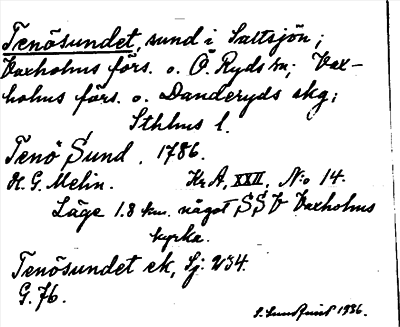 Tenösundet, sund i Saltsjön;
Vaxholms förs. o. Ö. Ryds sn; Vax-
holms förs. o. Danderyds skg;
Sthlms l.
Tenö Sund. 1786.
H. G. Melin. Kr A, XXII, N:o 14.
Läge 1.8 km. något SSV Vaxholms
kyrka.
Tenösundet ek, Sj: 234.
G. 76.
S. Sundqvist 1936.